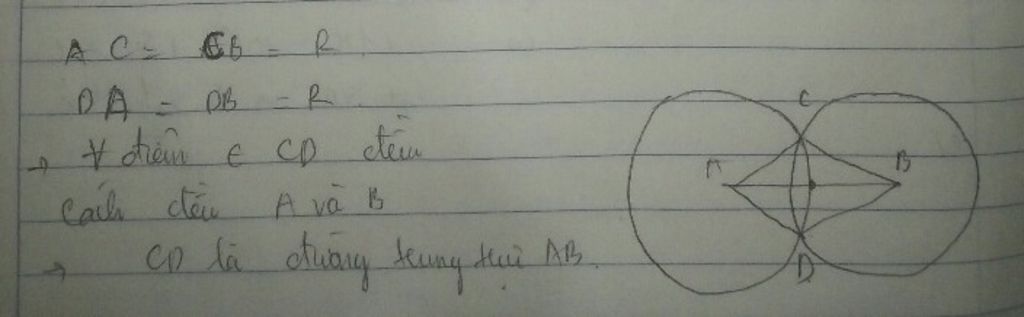 AC = CB = R
DA = DB = R
→ ∀ điểm ∈ CD đều
cách đều A và B
→ CD là đường trung trực AB.
C
A
B
D